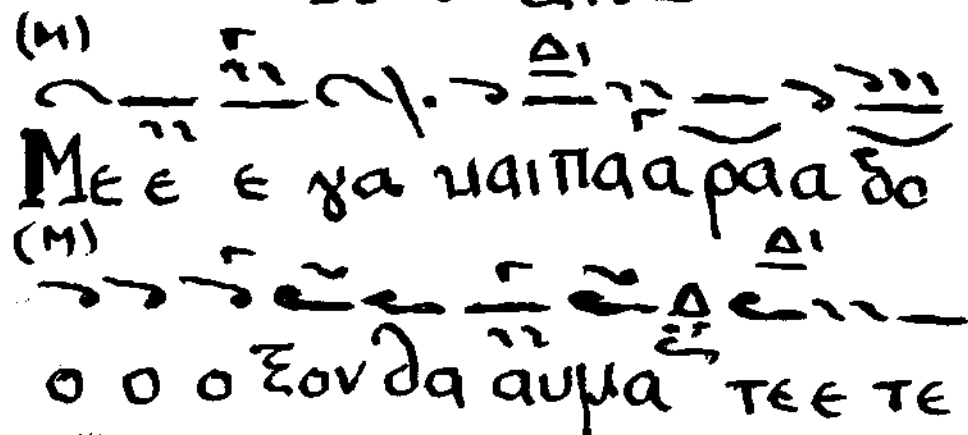 (М)
Με ε ε γα καιπαα ραα δο
(М)
ο ο ο ξον θα αυμα τεε τε